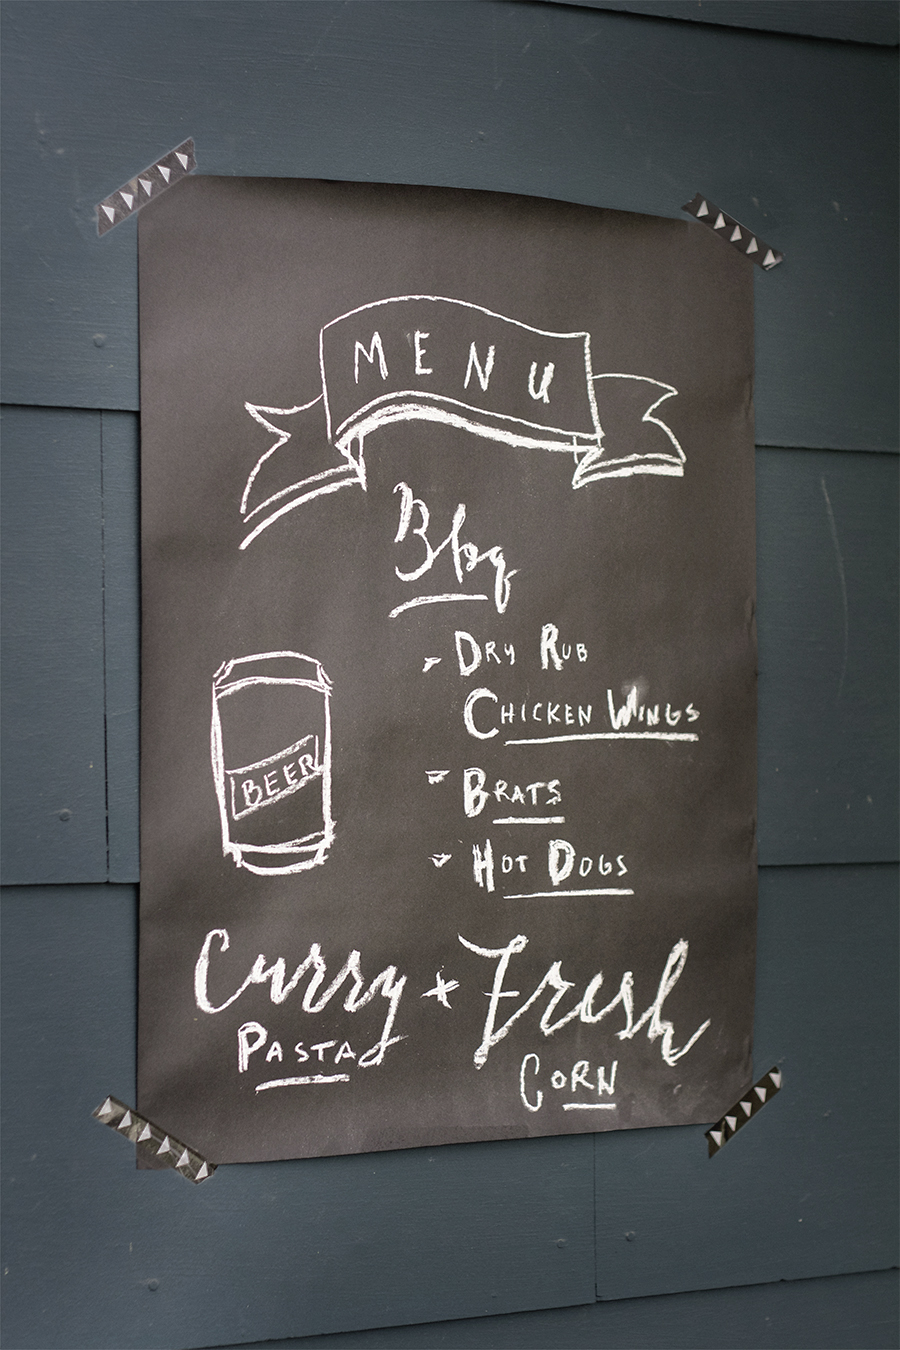 MENU
Bbq
DRY RUB
CHICKEN WINGS
BEER
BRATS
HOT DOGS
Curry + Fresh
PASTA
CORN